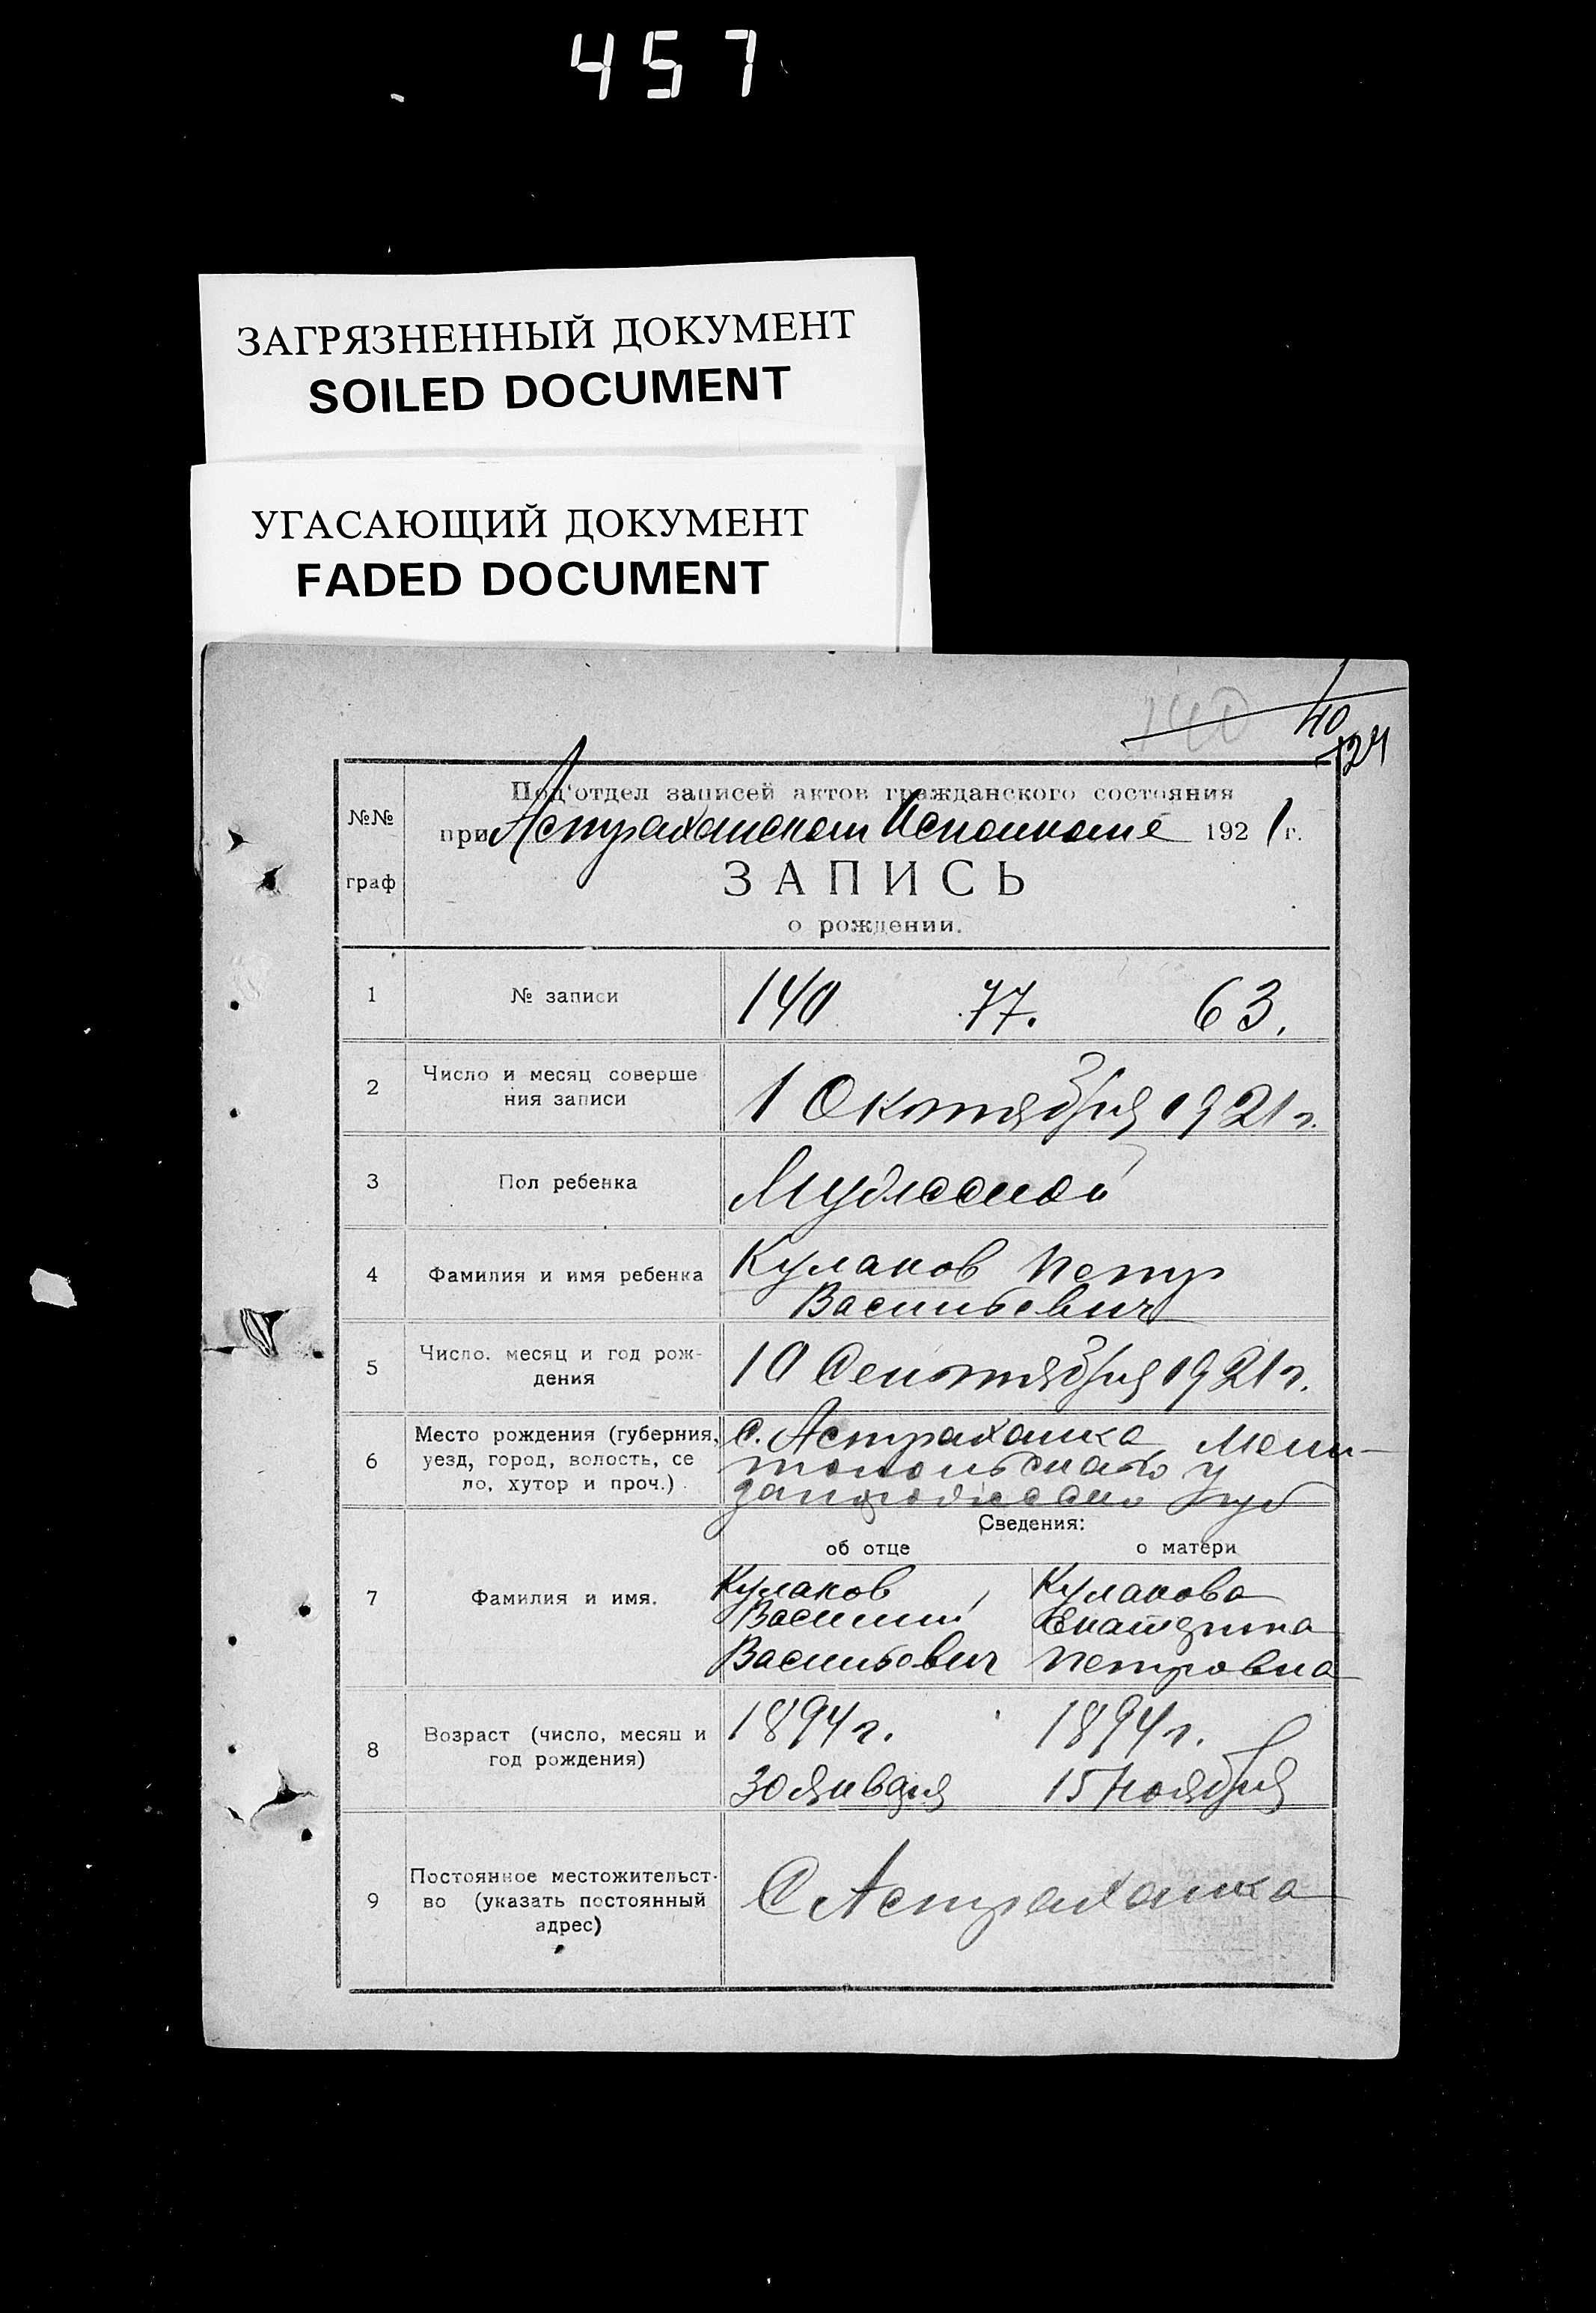 457
ЗАГРЯЗНЕННЫЙ ДОКУМЕНТ
SOILED DOCUMENT
УГАСАЮЩИЙ ДОКУМЕНТ
FADED DOCUMENT
140
№№
граф
Под'отдел записей актов гражданского состояния
при Астраханском Исполкоме 1921 г.
ЗАПИСЬ
о рождении.
1 № записи 140 77. 63.
2 Число и месяц соверше
ния записи
1 Октября 1921 г.
3 Пол ребенка Мужской
4 Фамилия и имя ребенка
Кулаков Петр
Васильевич
5 Число. месяц и год рож-
дения
10 Сентября 1921 г.
6 Место рождения (губерния,
уезд, город, волость, се
ло, хутор и проч.)
с. Астраханка Мели-
топольского у
Сведения:
об отце о матери
7 Фамилия и имя.
Кулаков Кулакова
Василий Екатерина
Васильевич Петровна
8 Возраст (число, месяц и
год рождения)
1894 г. 1894 г.
30 января 15 Ноября
9 Постоянное местожительст-
во (указать постоянный
адрес)
С Астраханка